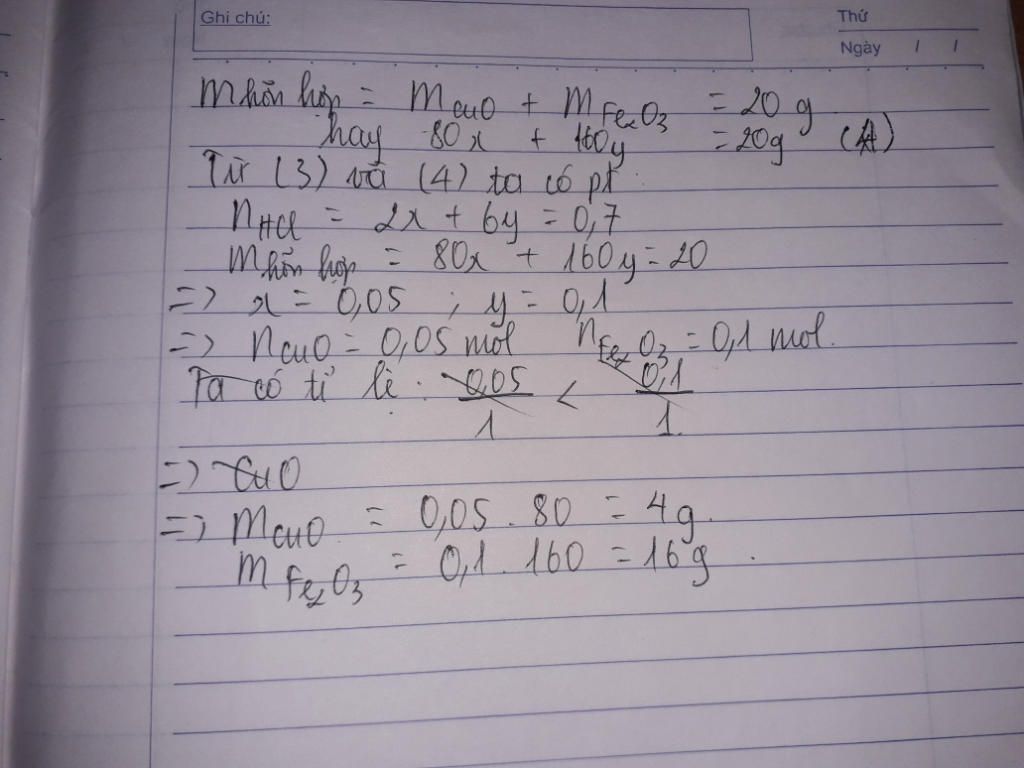 Ghi chú:
Thứ
Ngày / /
m hỗn hợp = mCuO + mFe2O3 = 20 g
hay 80x + 160y = 20g (4)
Từ (3) và (4) ta có pt:
nHCl = 2x + 6y = 0,7
m hỗn hợp = 80x + 160y = 20
=> x = 0,05 ; y = 0,1
=> nCuO = 0,05 mol nFe2O3 = 0,1 mol.
Ta có tỉ lệ: 0,05/1 < 0,1/1
=> CuO
=> mCuO = 0,05 . 80 = 4g.
mFe2O3 = 0,1 . 160 = 16g.